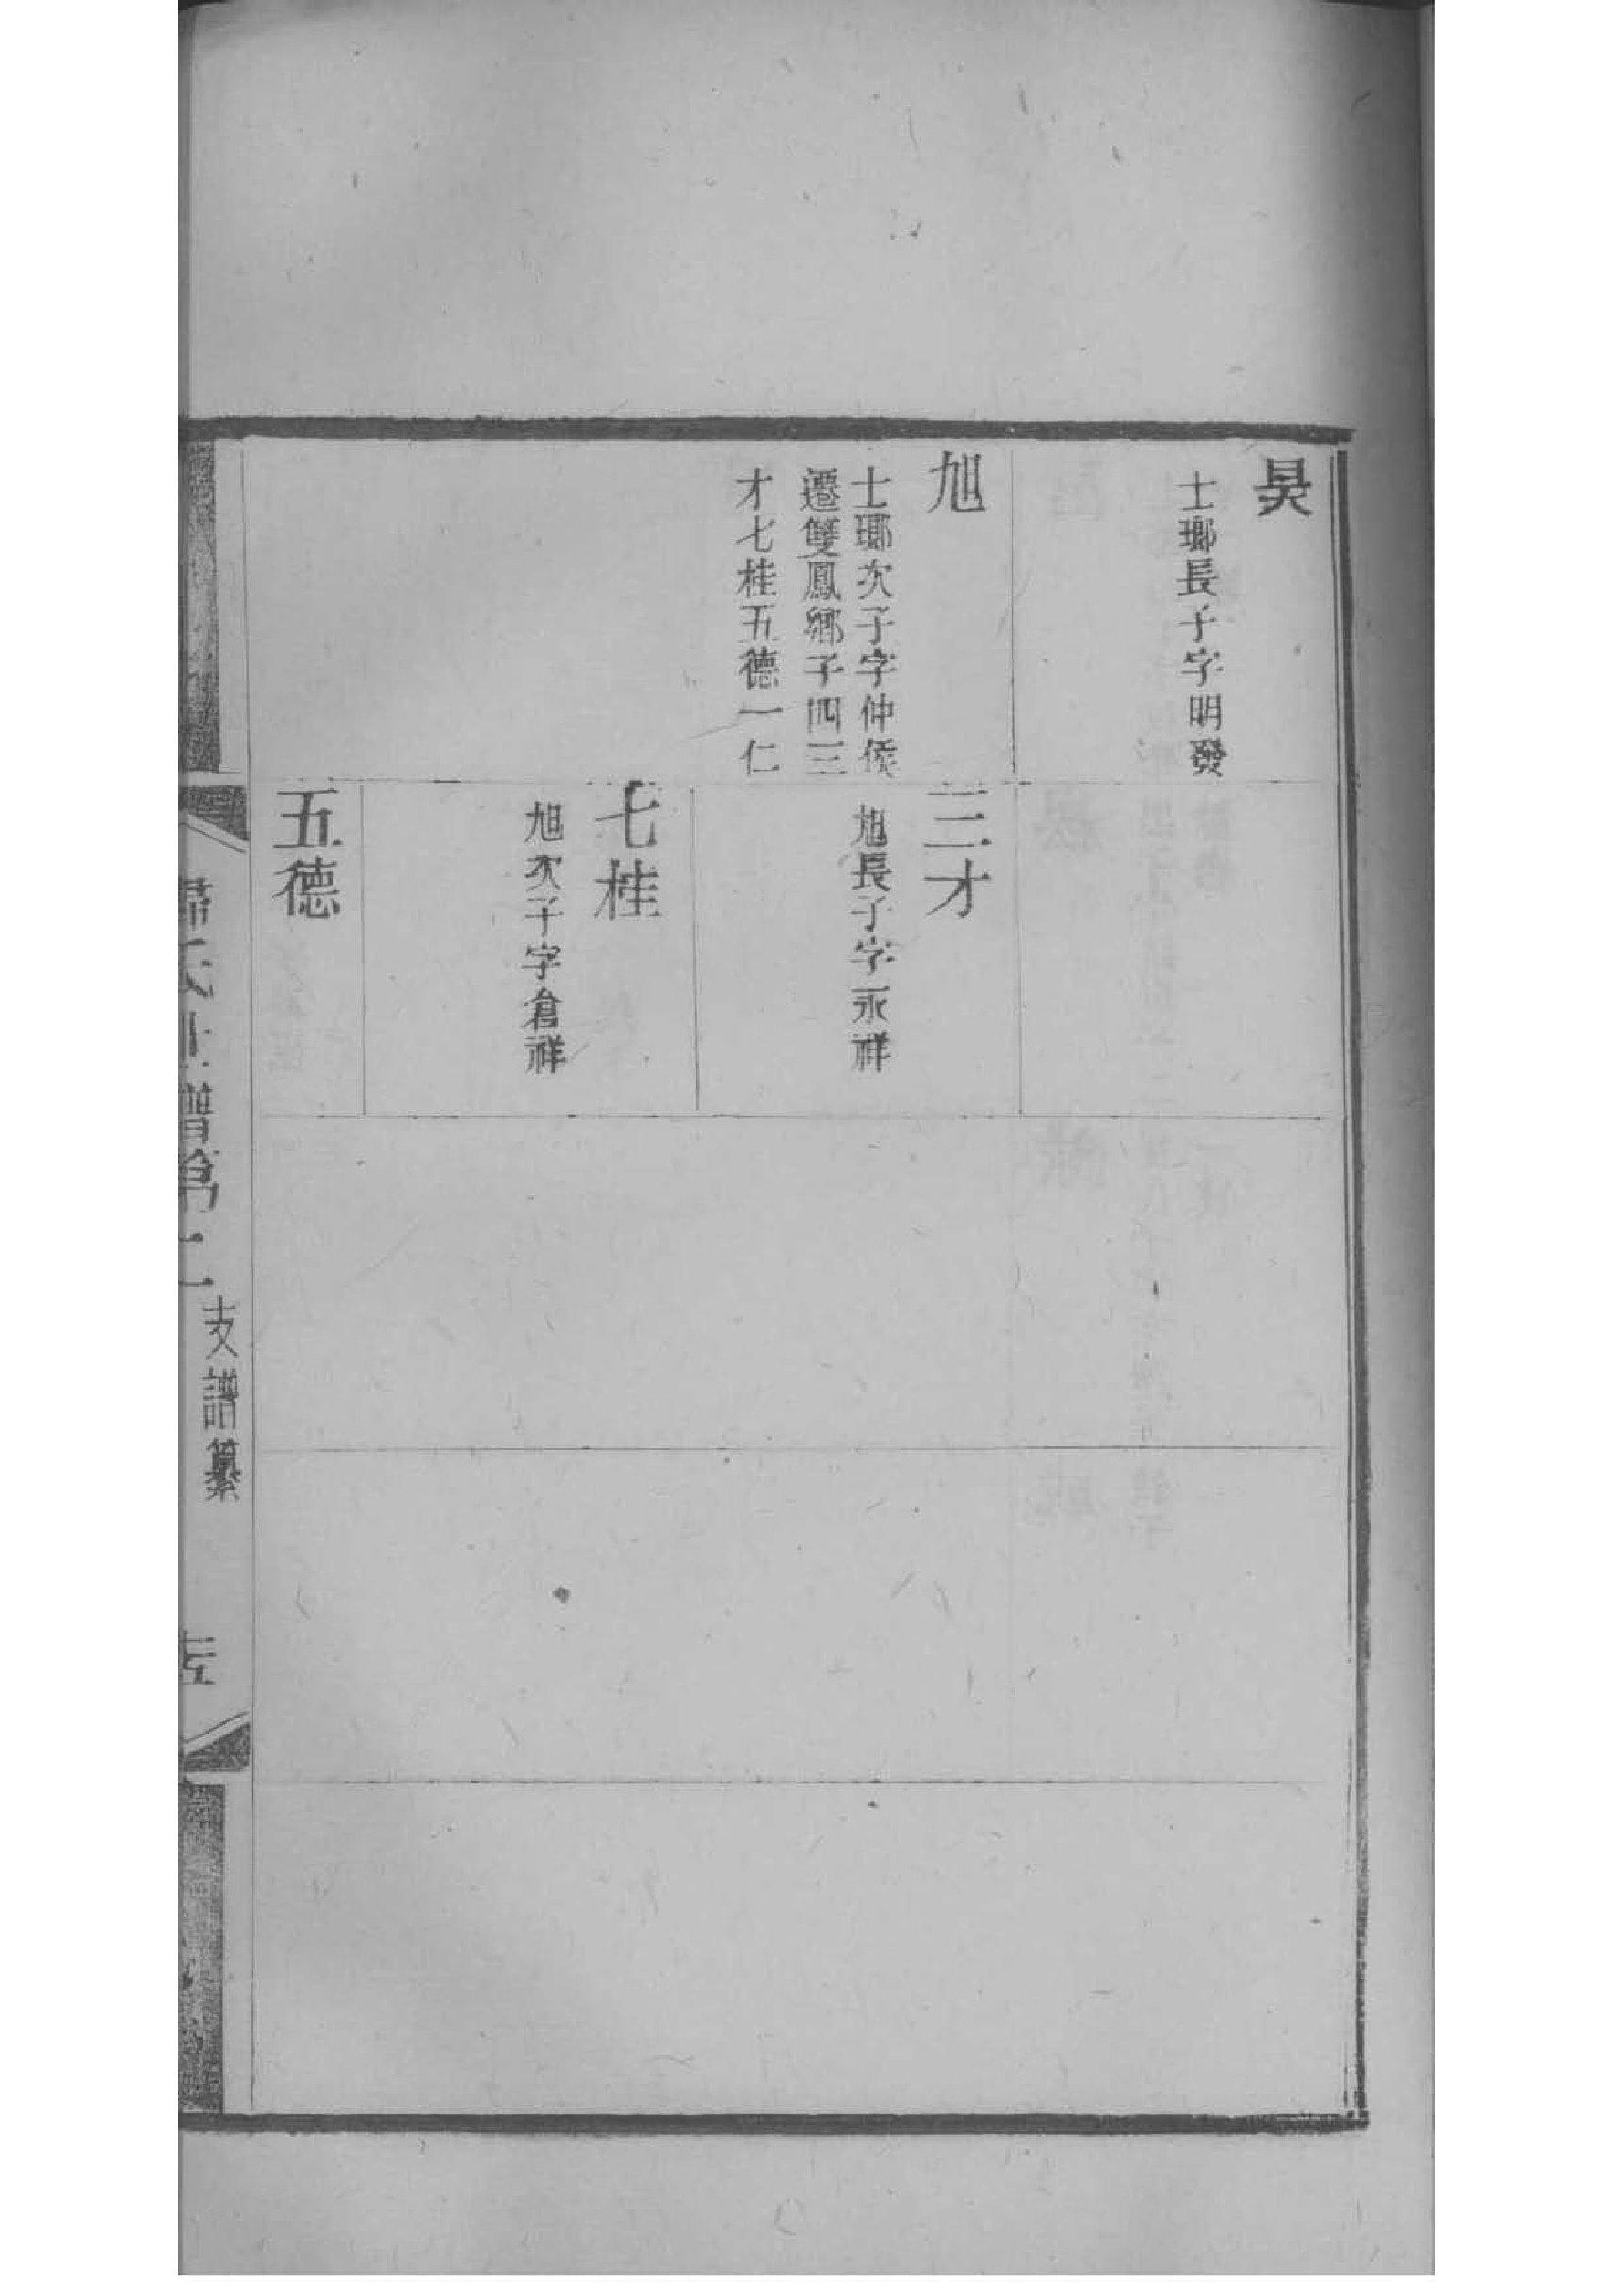 昊
士瑯長子字明發
旭
士瑯次子字仲侯
遷雙鳳鄉子四三
才七桂五德一仁
三才
旭長子字永祥
七桂
旭次子字倉祥
五德
歸氏世譜第二
支譜纂